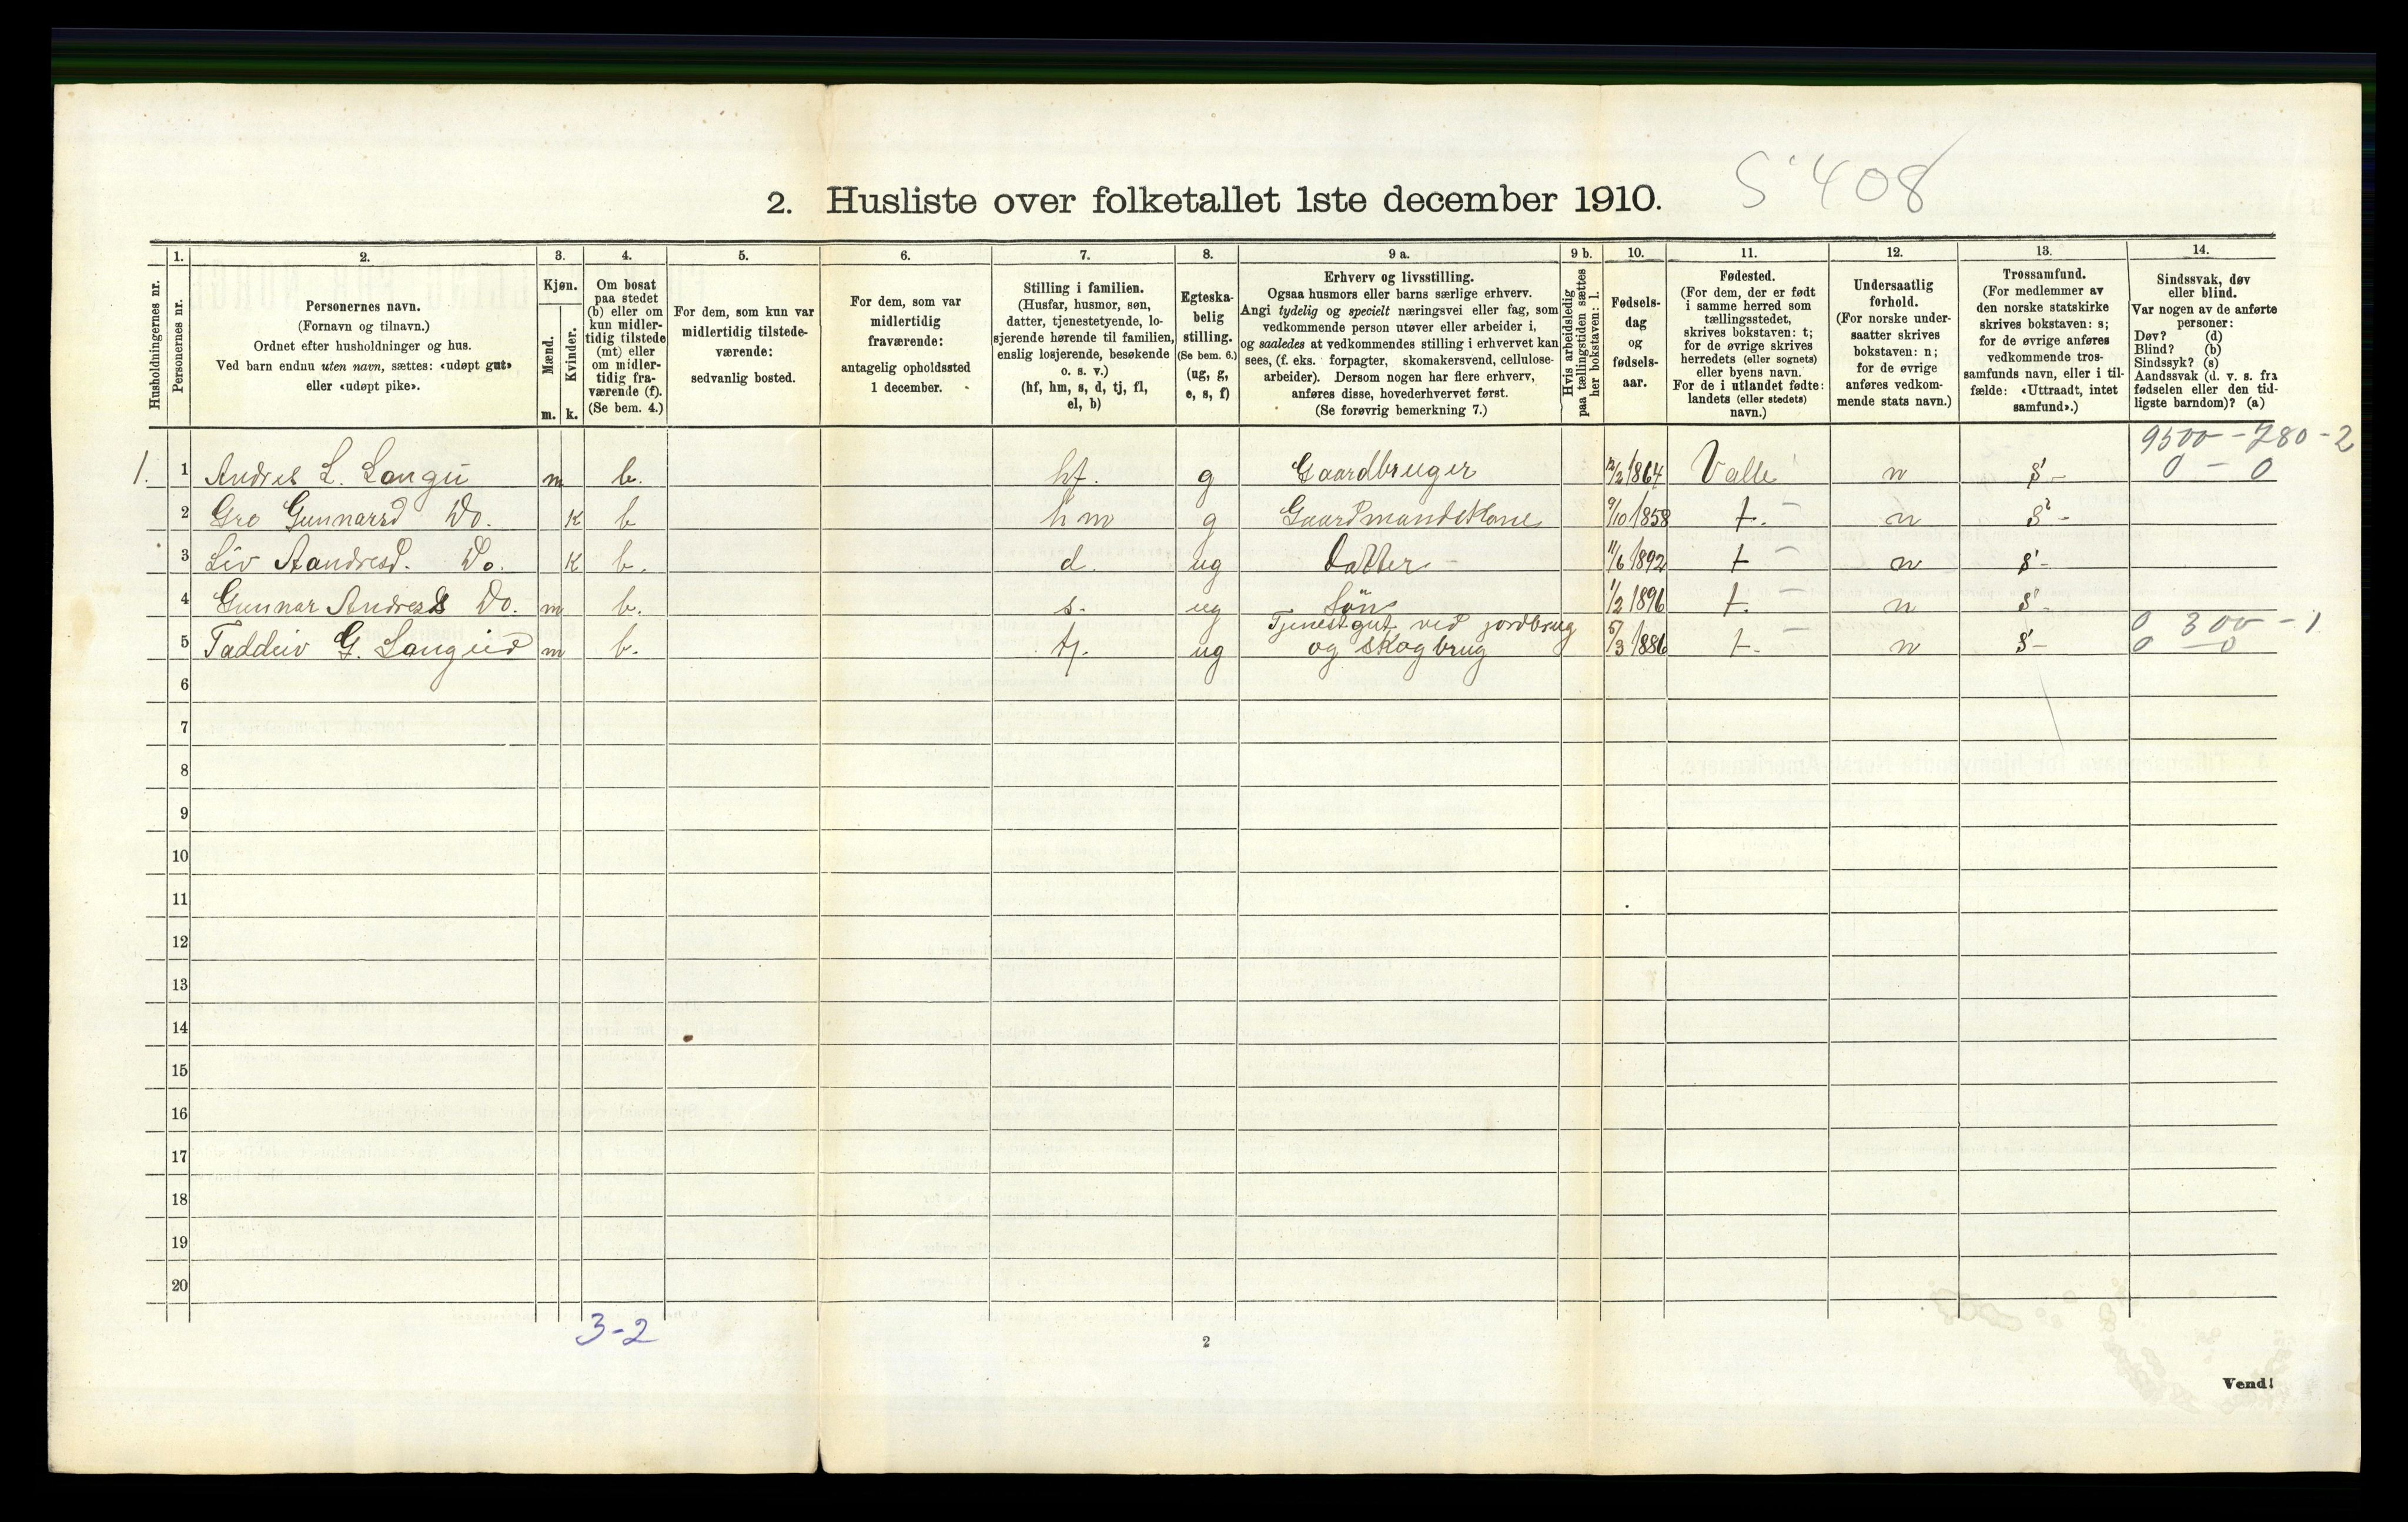 2. Husliste over folketallet 1ste december 1910.
S 408
Husholdningernes nr.
1. Personernes nr.
2. Personernes navn.
(Fornavn og tilnavn.)
Ordnet efter husholdninger og hus.
Ved barn endnu uten navn, sættes: «udøpt gut»
eller «udøpt pike».
3. Kjøn.
Mænd. m.
Kvinder. k.
4. Om bosat
paa stedet
(b) eller om
kun midler-
tidig tilstede
(mt) eller
om midler-
tidig fra-
værende (f).
(Se bem. 4.)
5. For dem, som kun var
midlertidig tilstede-
værende:
sedvanlig bosted.
6. For dem, som var
midlertidig
fraværende:
antagelig opholdssted
1 december.
7. Stilling i familien.
(Husfar, husmor, søn,
datter, tjenestetyende, lo-
sjerende hørende til familien,
enslig losjerende, besøkende
o. s. v.)
(hf, hm, s, d, tj, fl,
el, b)
8. Egteska-
belig
stilling.
(Se bem. 6.)
(ug, g,
e, s, f)
9 a. Erhverv og livsstilling.
Ogsaa husmors eller barns særlige erhverv.
Angi tydelig og specielt næringsvei eller fag, som
vedkommende person utøver eller arbeider i,
og saaledes at vedkommendes stilling i erhvervet kan
sees, (f. eks. forpagter, skomakersvend, cellulose-
arbeider). Dersom nogen har flere erhverv,
anføres disse, hovederhvervet først.
(Se forøvrig bemerkning 7.)
9 b. Hvis arbeidsledig
paa tællingstiden sættes
her bokstaven: l.
10. Fødsels-
dag
og
fødsels-
aar.
11. Fødested.
(For dem, der er født
i samme herred som
tællingsstedet,
skrives bokstaven: t;
for de øvrige skrives
herredets (eller sognets)
eller byens navn.
For de i utlandet fødte:
landets (eller stedets)
navn.)
12. Undersaatlig
forhold.
(For norske under-
saatter skrives
bokstaven: n;
for de øvrige
anføres vedkom-
mende stats navn.)
13. Trossamfund.
(For medlemmer av
den norske statskirke
skrives bokstaven: s;
for de øvrige anføres
vedkommende tros-
samfunds navn, eller i til-
fælde: «Uttraadt, intet
samfund».)
14. Sindssvak, døv
eller blind.
Var nogen av de anførte
personer:
Døv? (d)
Blind? (b)
Sindssyk? (s)
Aandssvak (d. v. s. fra
fødselen eller den tid-
ligste barndom)? (a)
9500 - 780 - 2
1. 1 Andres L. Langei m b. hf. g Gaardbruger 12/2 1864 Valle n s - 0 - 0
2 Gro Gunnarsd Do. K b hm g Gaardmandskone 9/10 1858 t. - n s -
3 Liv Aandresd. Do. K b. d. ug Datter - 11/6 1892 t - n s -
4 Gunnar Andress Do. m b. s. ug Søn 1/2 1896 t. - n s -
Tjenestgut ved jordbrug 0 300 - 1
5 Taddeiv G. Langeid m b. tj. ug og skogbrug 5/3 1886 t. - n s - 0 - 0
6
7
8
9
10
11
12
13
14
15
16
17
18
19
20
3-2
2
Vend!